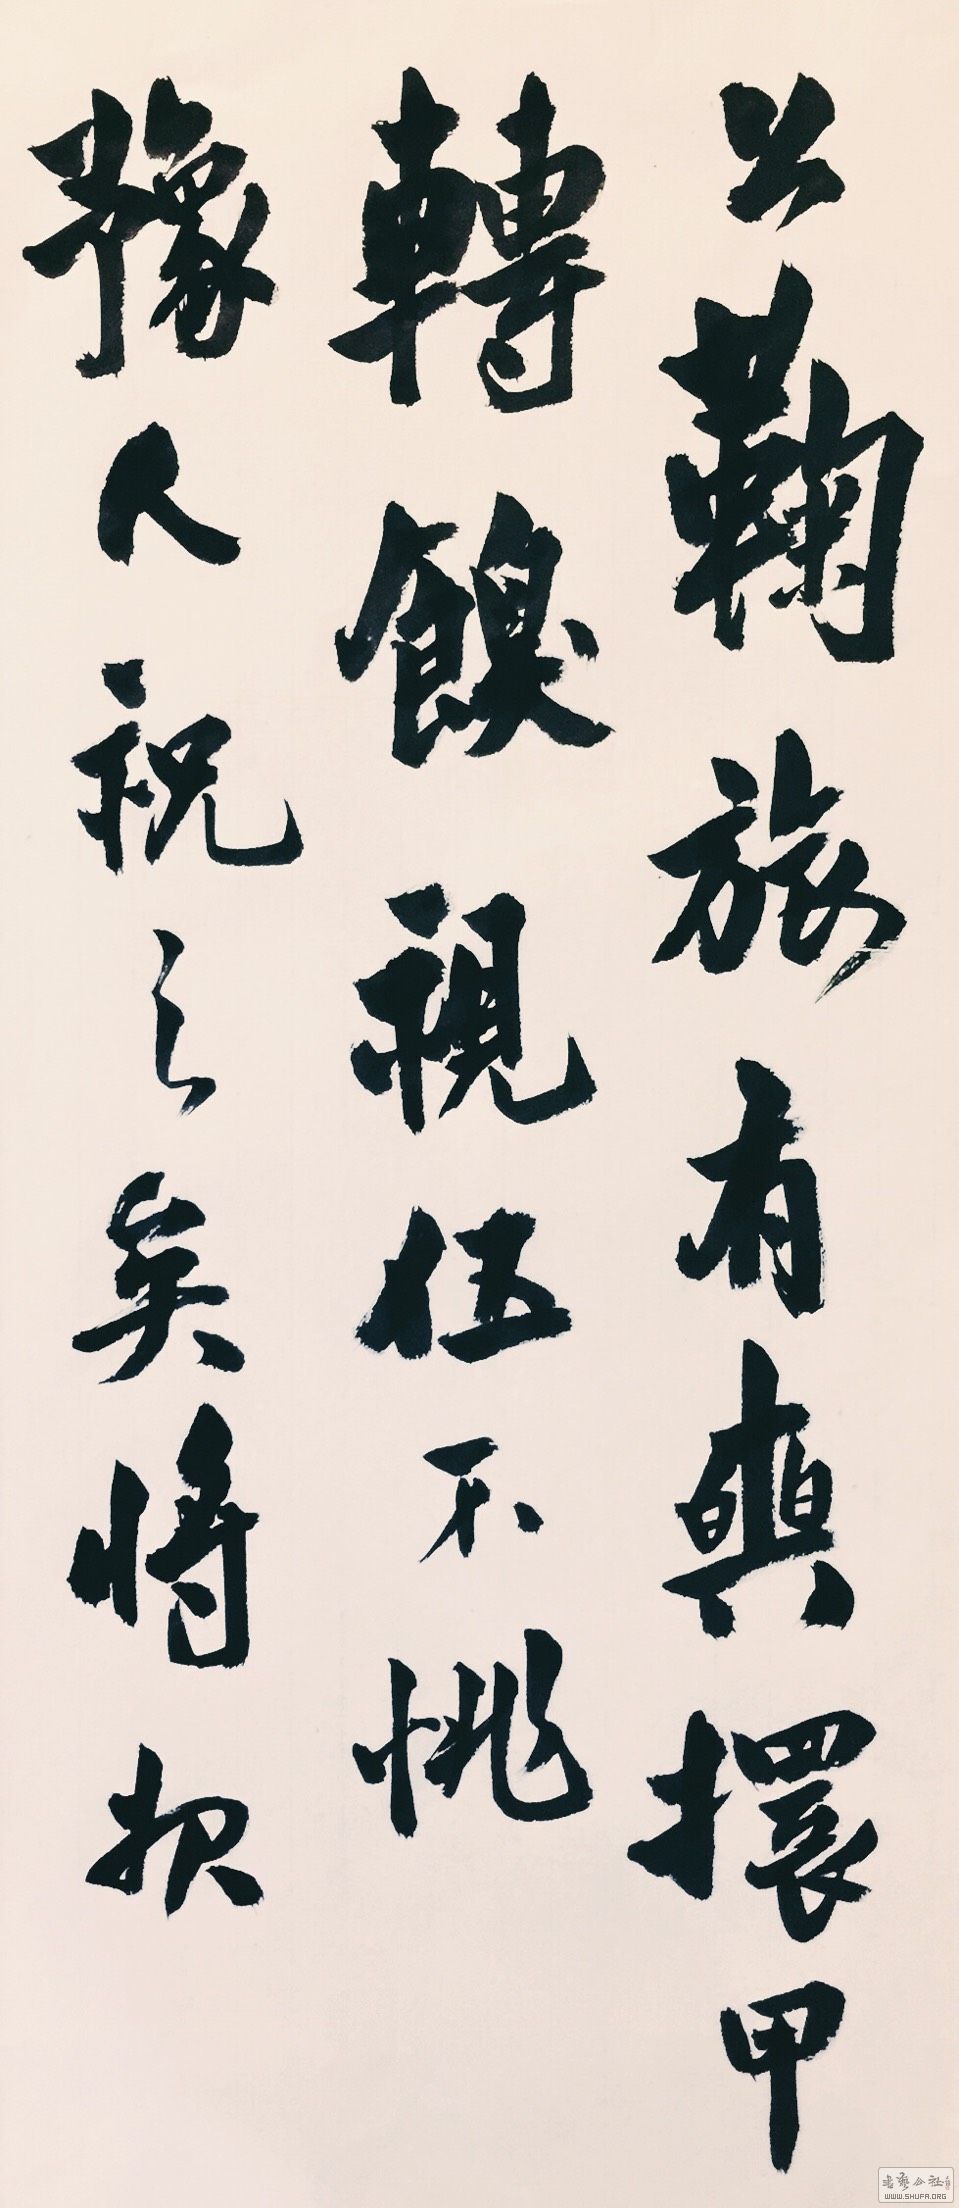 公鞠旅有輿擐甲
轉餽視伍不恌
豫人祝之矣將牧
書藝公社
WWW.SHUFA.ORG